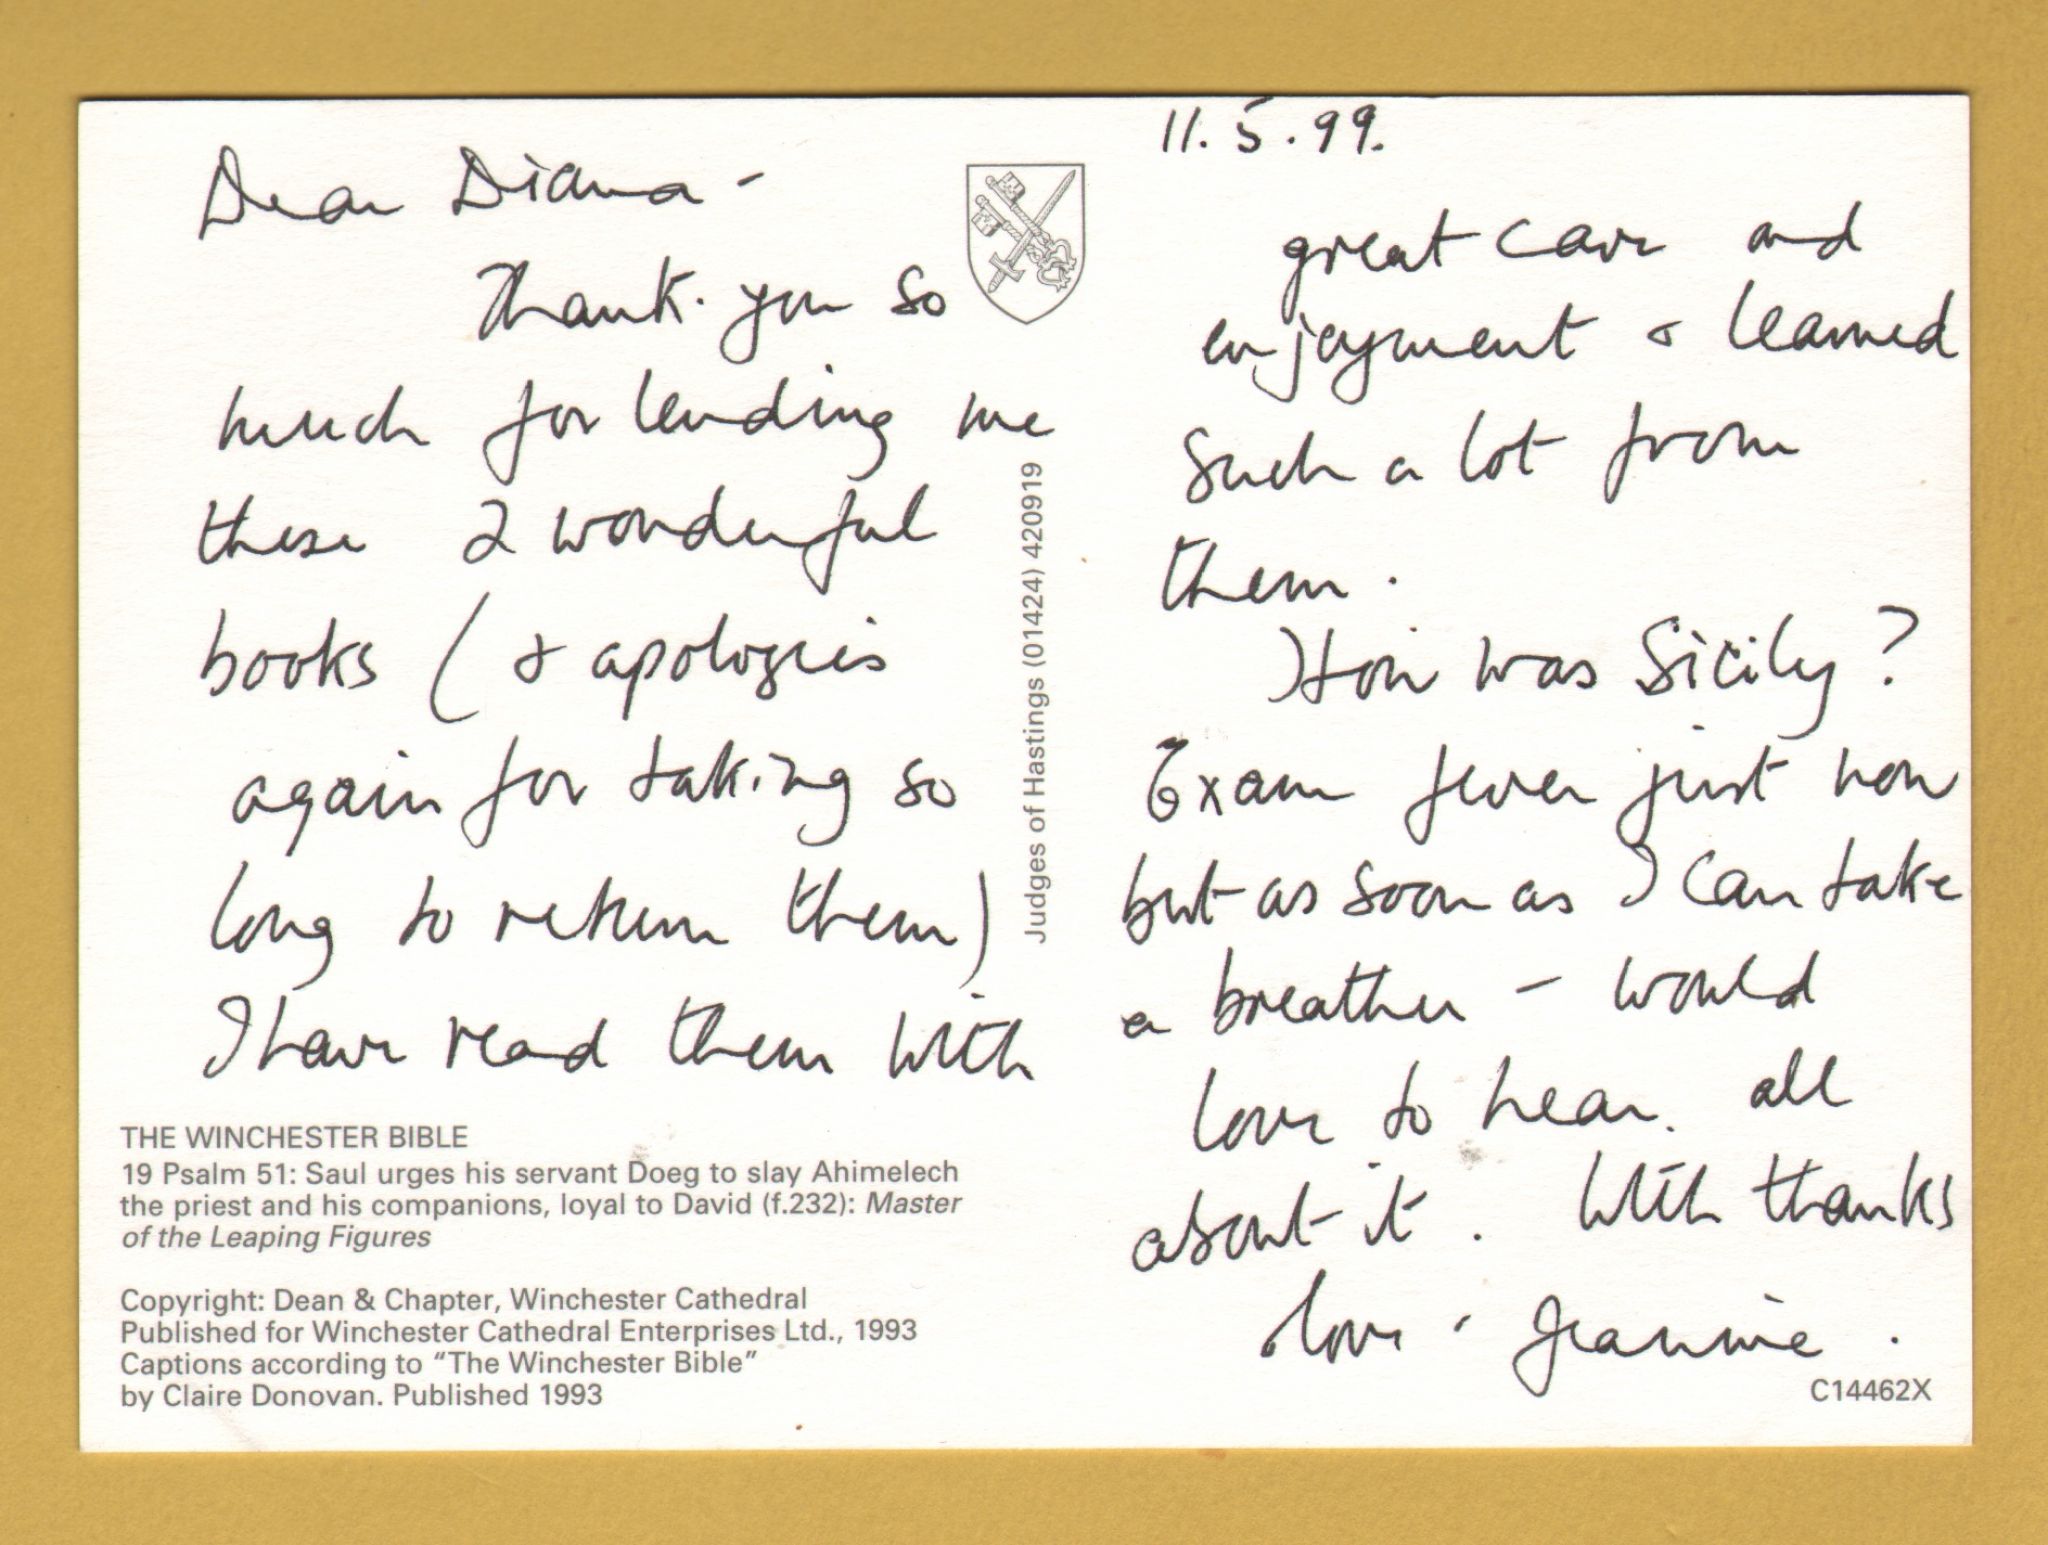 Dear Diana -
Thank you so
much for lending me
these 2 wonderful
books (& apologies
again for taking so
long to return them)
I have read them with
THE WINCHESTER BIBLE
19 Psalm 51: Saul urges his servant Doeg to slay Ahimelech
the priest and his companions, loyal to David (f.232): Master
of the Leaping Figures
Copyright: Dean & Chapter, Winchester Cathedral
Published for Winchester Cathedral Enterprises Ltd., 1993
Captions according to “The Winchester Bible”
by Claire Donovan. Published 1993
Judges of Hastings (01424) 420919
11.5.99.
great care and
enjoyment & learned
such a lot from
them.
How was Sicily?
Exam fever just now
but as soon as I can take
a breather - would
love to hear all
about it. With thanks
love - Jeannie.
C14462X